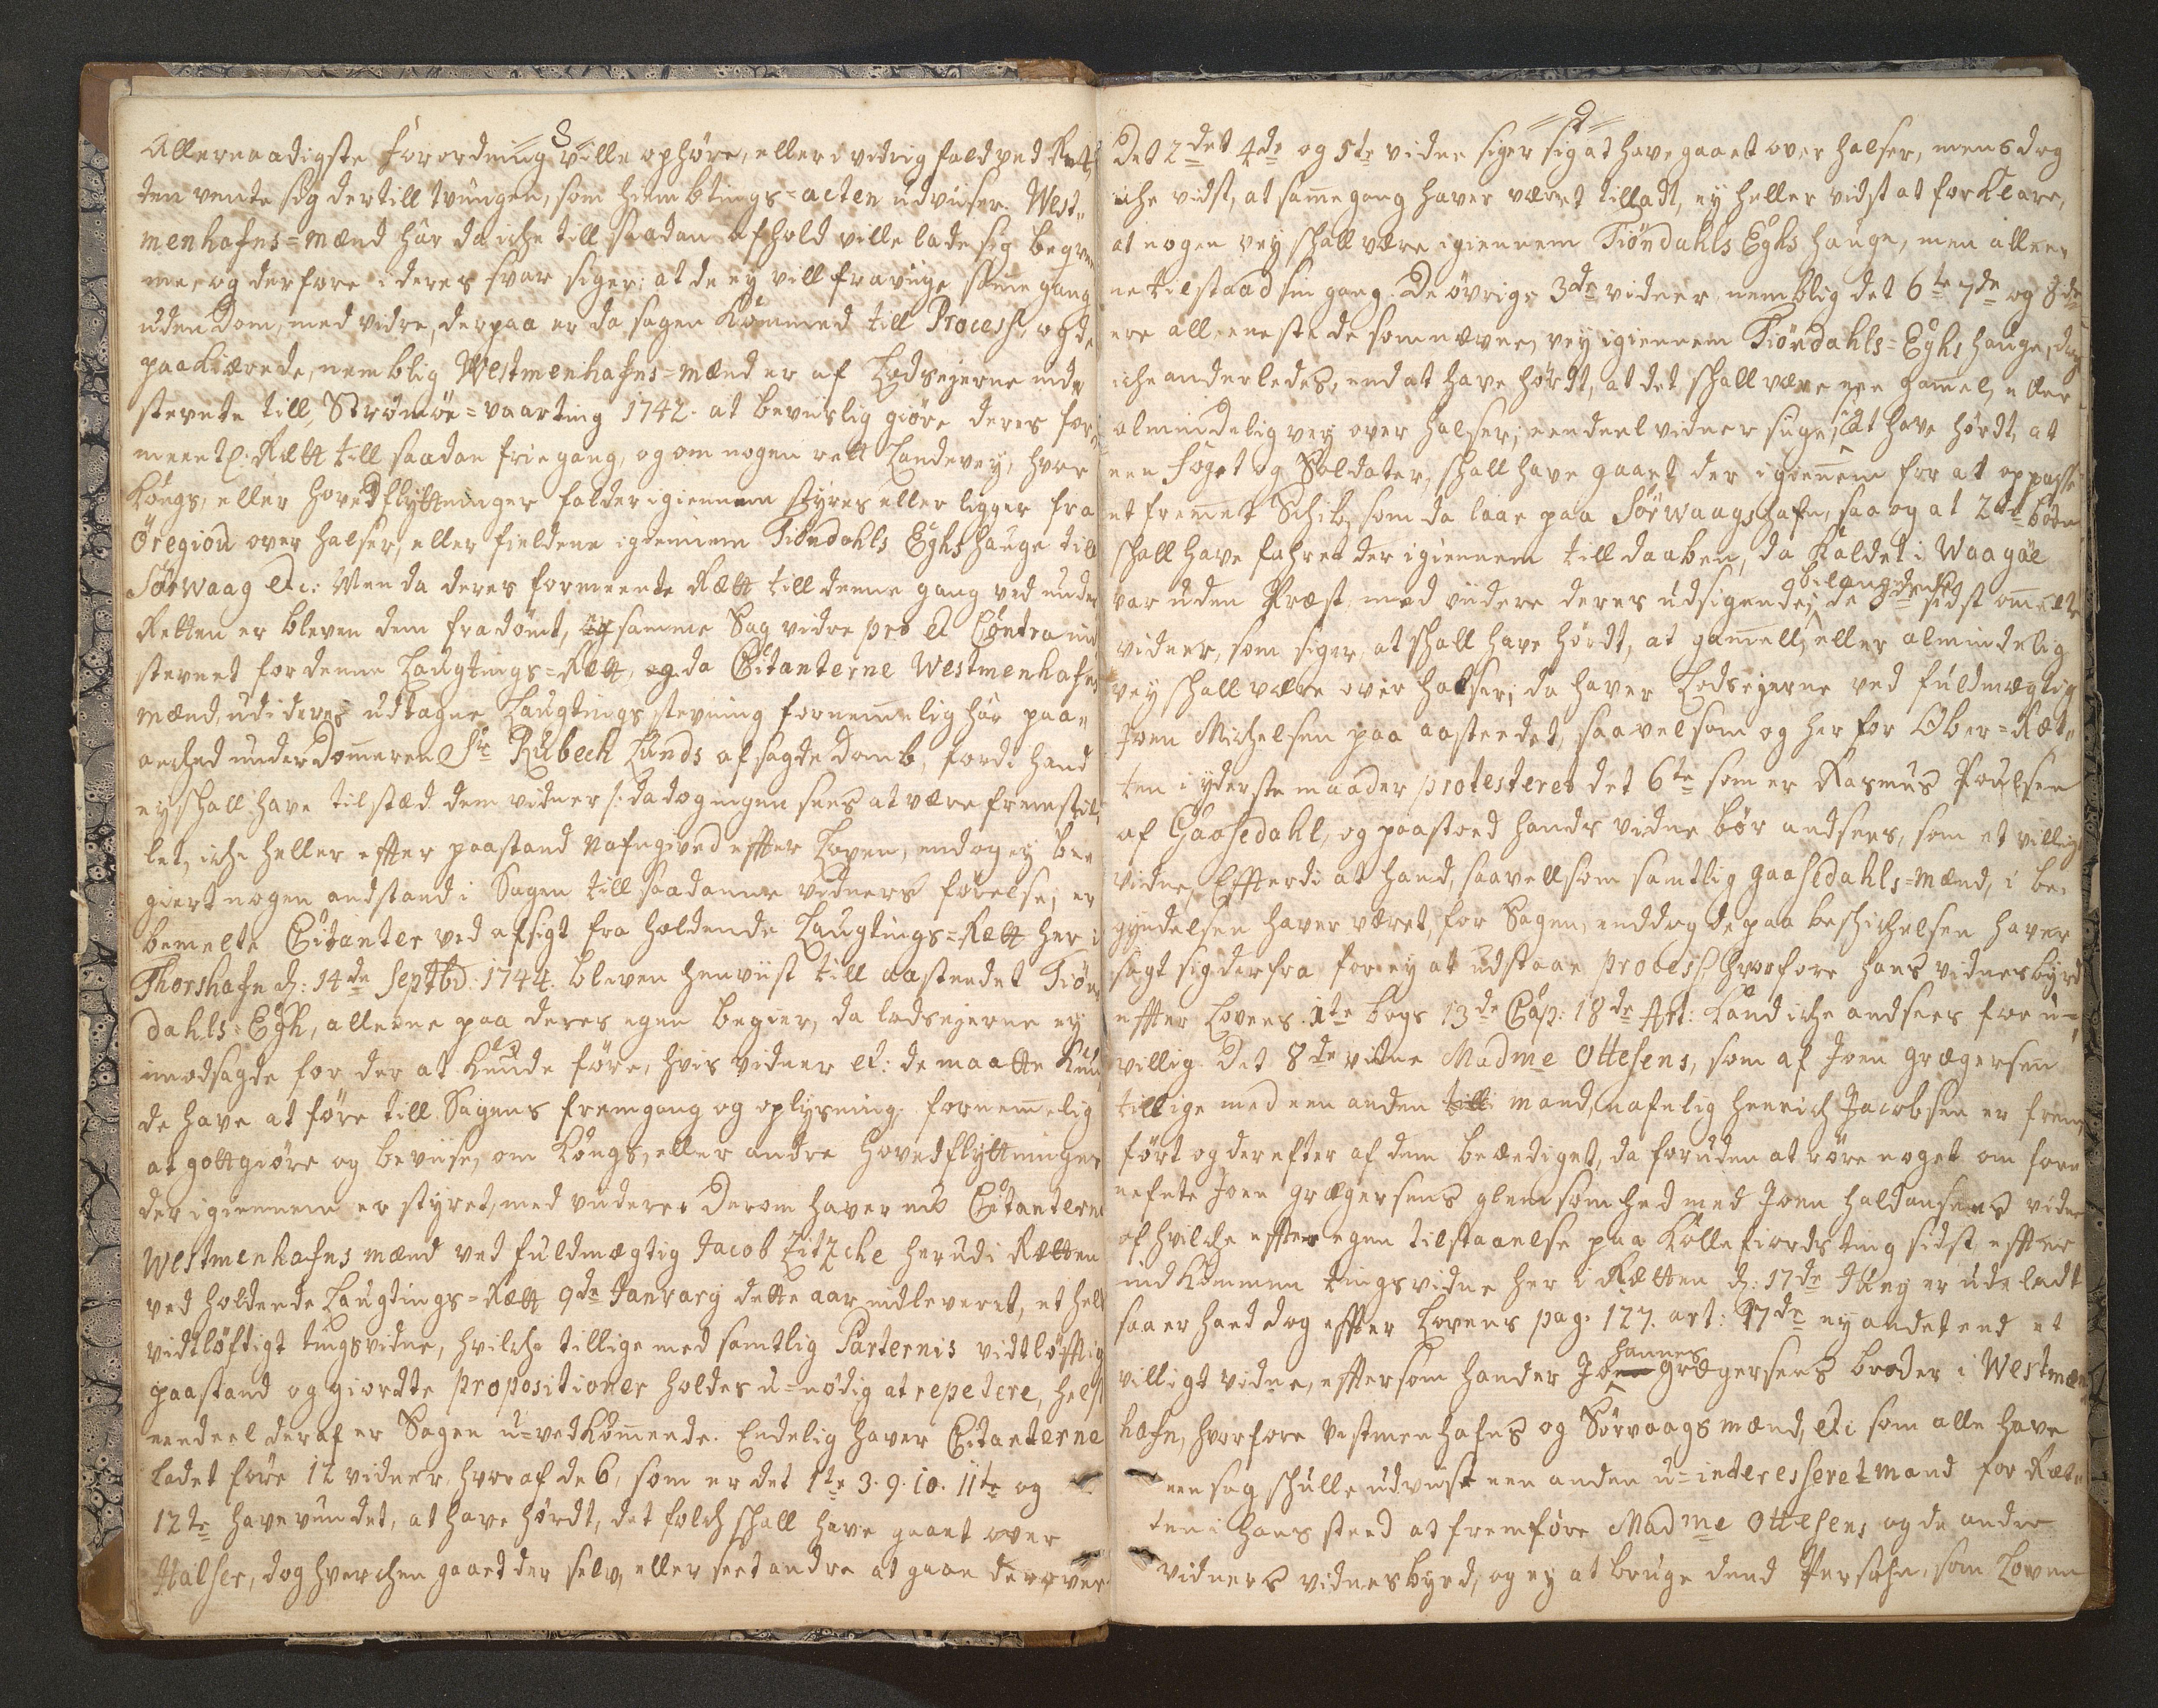 8
Allernaadigste Forordning ville ophøre, eller i vidrig fald ved Rett
ten vente sig dertill tvungen, som hiembtings=acten udviiser. West-
menhafns=mænd har da iche till saadan afhold ville lade sig beqvem
me, og derfore i deres svar siger: at de ey vill fravige samme gang
uden dom, med vidre, derpaa er da sagen kommed till Process, og de
paakiærede, nemblig Westmenhafns=mænd er af Lodsejerne inde
stevnte till Strømøe=vaarting 1742. at beviislig giøre deres for-
meent: Rætt till saadan frie gang, og om nogen rett Landevey, hvor
Kongs, eller hovedflyttninger falder igiennem styres eller ligger fra
Øregiow over halser, eller fieldene igiennem Tiøndahls Eghs hauge till
Sørwaag etc: Men da deres formeente Rætt till denne gang ved under
Retten er bleven dem fradømt, og samme Sag vidre pro et Contra ind
stevnet for denne Laugtings=Rætt, og da Citanterne Westmenhafns
mænd, udi deres udtagne Laugtings stevning fornemmelig har paa-
anched underdommeren Sr Rübech Lunds afsagde domb, fordi hand
ey schall have tilstæd dem vidner /: da dog ingen sees at være fremstil-
let, iche heller effter paastand nafngived effter Loven, end og ey be-
giert nogen andstand i Sagen till saadanne vidners førelse, er
bemelte Citanter ved afsigt fra holdende Laugtings=Rætt her i
Thorshafn d: 14de Septbr: 1744. bleven henviist till aastædet Tiøn
dahls=Egh, alleene paa deres egen begier, da lodsejerne ey
imodsagde for der at kunde føre, hvis vidner etc: de maatte kun
de have at føre till Sagens fremgang og oplysning. fornemmelig
at gottgiøre og beviise, om Kongs, eller andre hovedflyttninger
der igiennem er styret, med viidere. Derom haver nu Citanterne
Westmenhafns mænd ved fuldmægtig Jacob Zitzche herudi Rætten
ved holdende Laugtings=Rætt 9de Janvary dette aar indleveret, et heel
vidtløftigt tingsvidne, hvilche tillige med samtlig Parternis vidtløfftig
paastand og giordte propositioner holdes u=nødig at repetere, helst
eendeel deraf er Sagen u=vedkommende. Endelig haver Citanterne
ladet føre 12 vidner, hvoraf de 6, som er det 1te 3. 9. 10. 11te og
12te have vundet, at have hørdt, det folch schall have gaaet over
Halser, dog hverchen gaaet der selv, eller seet andre at gaae derover.
9
Det 2det 4de og 5te vidne siger sig at have gaaet over halser, mens dog
iche vidst, at samme gang haver været tilladt, ey heller vidst at forklare,
at nogen vey schall være igiennem Tiøndahls Eghs hauge, men allee-
ne tilstaaed sin gang. De øvrige 3de vidner, nemblig det 6te 7de og 8de
ere alleeneste de som nævne, vey igiennem Tiøndahls=Eghs hauge, dog
iche anderledes, end at have hørdt, at det schall være een gamel, eller
almindelig vey over halser; eendeel vidner siger, sig at have hørdt, at
een foget og Soldater, schall have gaaet der igiennem for at oppasse
et fremmet Schib, som da laae paa Sørwaags hafn, saa og at 2de børn
schall have fahret der igiennem till daaben, da kaldet i Waagøe
var uden Præst, med viidere deres udsigende; bilangende de 3de sidst ommelte
vidner, som siger, at schall have hørdt, at gamell, eller almindelig
vey schall være over halser; da haver Lodsejerne ved fuldmægtig
Joen Michelsen paa aastædet, saavelsom og her for Ober=Ræt-
ten i yderste maader protesteret det 6te som er Rasmus Poulsen
af Gaasedahl, og paastoed hands vidne bør andsees, som et villigt
vidne, Effterdi at hand, saavellsom samtlig gaasedahls=mænd, i be-
gyndelsen haver været, for Sagen, enddog de paa beschichelsen haver
sagt sig derfra for ey at udstaae process hvorfore hans vidnesbyrd
effter Lovens 1te bogs 13de Cap: 18de Art: kand iche andsees for u=
villig. Det 8de vidne Madme Ottesens, som af Joen Grægersen
tillige med een anden till mand, nafnlig Henrich Jacobsen er frem
ført og derefter af dem beædiget, da foruden at røre noget om forn
nefnte Joen Grægersens glemsomhed med Joen Haldansens vidne
af hvilche effter egen tilstaaelse paa Kollefiords ting sidst effter
indkommen tingsvidne her i Rætten d: 17de er udeladt
saa er hand dog effter Lovens pag. 127. art: 17de ey andet end et
villigt vidne, effter som hand er Johannes Grægersens broder i Westmen
hafn, hvorfore Vestmenhafns og Sørvaags mænd, etc som alle have
een sag schulle udviist een anden u=interesseret mand for Ræt-
ten i hans stæd at fremføre Madme Ottesens og de andre
vidners vidnesbyrd, og ey at bruge dend Persohn, som Loven